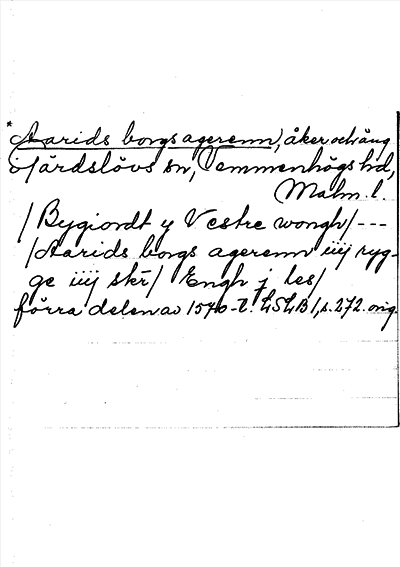 * Aarids borgs agerenn, åker och äng
i Järdslövs sn, Vemmenhögs hd,
Malm. l.
/Bygiordt y Vestre wongh/---
/Aarids borgs agerenn iiij ryg-
ge iiij skr/ Engh j les/
förra delen av 1570-t. LSLB 1, s. 272. orig.